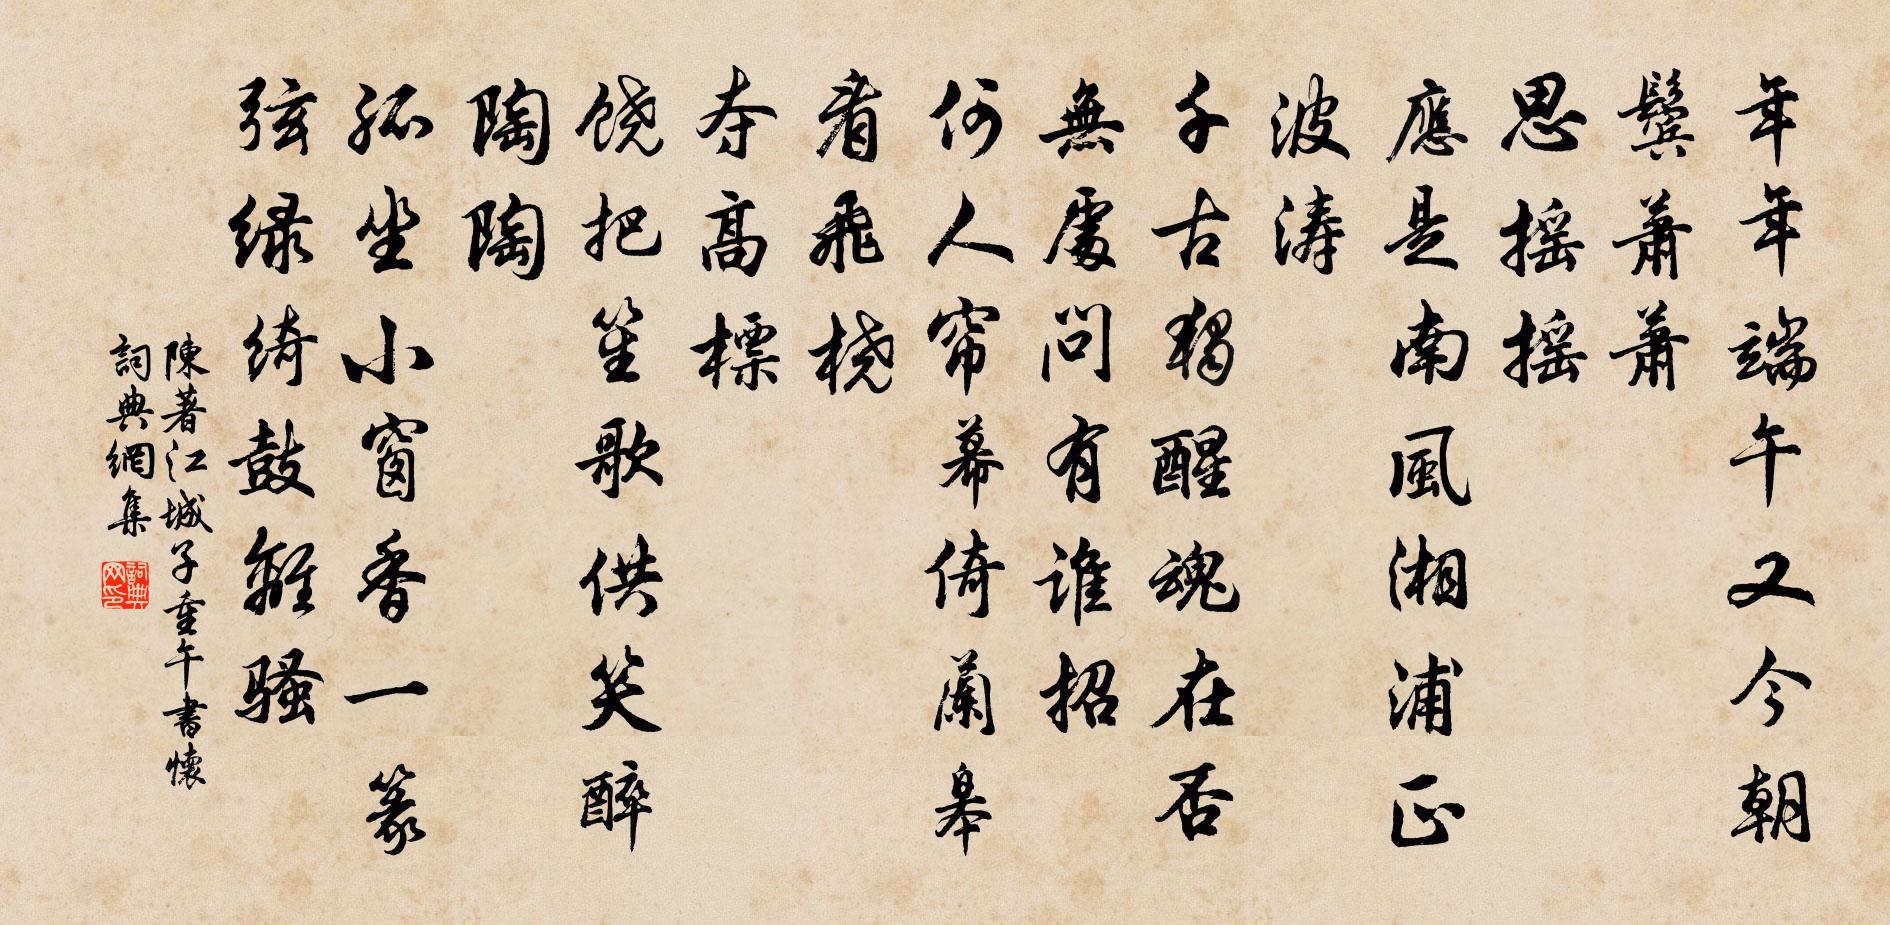 年年端午又今朝
鬓萧萧
思摇摇
應是南風湘浦正
波涛
千古獨醒魂在否
無處問有誰招
何人帘幕倚蘭皋
看飛桡
夺高標
饶把笙歌供笑醉
陶陶
孤坐小窗香一篆
弦绿绮鼓離騷
陳著江城子重午書懷
詞典網集
詞典网印